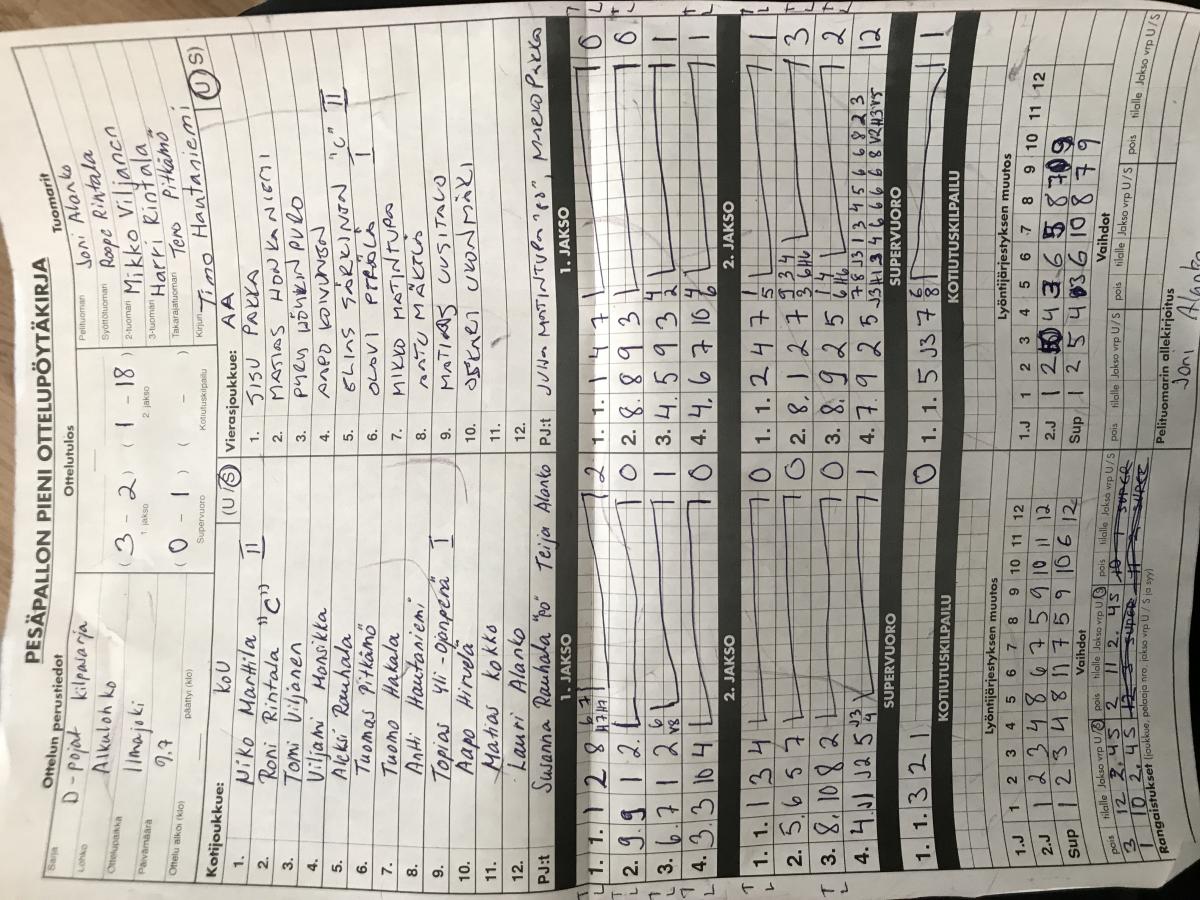 PESÄPALLON PIENI OTTELUPÖYTÄKIRJA
Ottelun perustiedot
Ottelutulos
Tuomarit
Sarja D-pojat kilpasarja
Lohko Alkulohko
Ottelupaikka Ilmajoki
Päivämäärä 9.7
Ottelu alkoi (klo) päättyi (klo)
( 3 - 2 ) ( 1 - 18 )
1. jakso 2. jakso
( 0 - 1 ) ( - )
Supervuoro Kotiutuskilpailu
Pelituomari Joni Alanko
Syöttötuomari Roope Rintala
2-tuomari Mikko Viljanen
3-tuomari Harri Rintala
Takarajatuomari Tero Pitkämö
Kirjuri Timo Hautaniemi
Kotijoukkue: KoU (U/S)
1. Niko Marttila
2. Roni Rintala "C" II
3. Tomi Viljanen
4. Viljami Honsikka
5. Aleksi Rauhala
6. Tuomas Pitkämö
7. Tuomo Hakala
8. Antti Hautaniemi
9. Topias Yli-Ojanperä I
10. Aapo Hirvelä
11. Matias Kokko
12. Lauri Alanko
PJ:t Susanna Rauhala "PO" Teija Alanko
Vierasjoukkue: AA (U/S)
1. JISU PAKKA
2. MATIAS HONKANIEMI
3.
4. AAPO KOIVUNIEMI
5. ELIAS SÄRKINIEN "C" II
6. OLAVI PERÄLÄ I
7. MIKKO MATINTUPA
8. AATU MÄKELÄ
9. MATIAS UUSITALO
10. OSKARI UKONMÄKI
11.
12.
PJ:t JUHA MATINTUPA "PO", MARKO PAKKA
1. JAKSO
1. 1. 1 2 8 6 7 2
2. 9. 9 1 2. 0
3. 6. 7 1 2 6 1
4. 3. 3 10 4 0
2. JAKSO
1. 1. 1 3 4 0
2. 5. 6 5 7 0
3. 8. 10 8 2 0
4. 4. J1 J2 5 J3 4 1
SUPERVUORO
1. 1. 3 2 1 0
KOTIUTUSKILPAILU
1. JAKSO
1. 1. 1 4 7 1 0
2. 8. 8 9 3 0
3. 4. 5 9 3 4 2 1
4. 4. 6 7 10 4 6 1
2. JAKSO
1. 1. 2 4 7 1 5 1
2. 8. 1 2 7 3
3. 8. 9 2 5 2
4. 7. 9 2 5 12
SUPERVUORO
1. 1. 5 J3 7 6 8 1
KOTIUTUSKILPAILU
Lyöntijärjestyksen muutos
1 2 3 4 5 6 7 8 9 10 11 12
1.J
2.J 1 2 3 4 8 6 7 5 9 10 11 12
Sup 1 2 3 4 8 11 7 5 9 10 6 12
Vaihdot
pois tilalle Jakso vrp U/S pois tilalle Jakso vrp U/S pois tilalle Jakso vrp U/S
3 12 2. 4S 2 11 2. 4S
1 10 2. 4S
Rangaistukset (joukkue, pelaaja nro, jakso vrp U/S ja syy)
Lyöntijärjestyksen muutos
1 2 3 4 5 6 7 8 9 10 11 12
1.J
2.J
Sup 1 2 5 4 3 6 10 8 7 9
Vaihdot
pois tilalle Jakso vrp U/S pois tilalle Jakso vrp U/S pois tilalle Jakso vrp U/S
Pelituomarin allekirjoitus
Joni Alanko